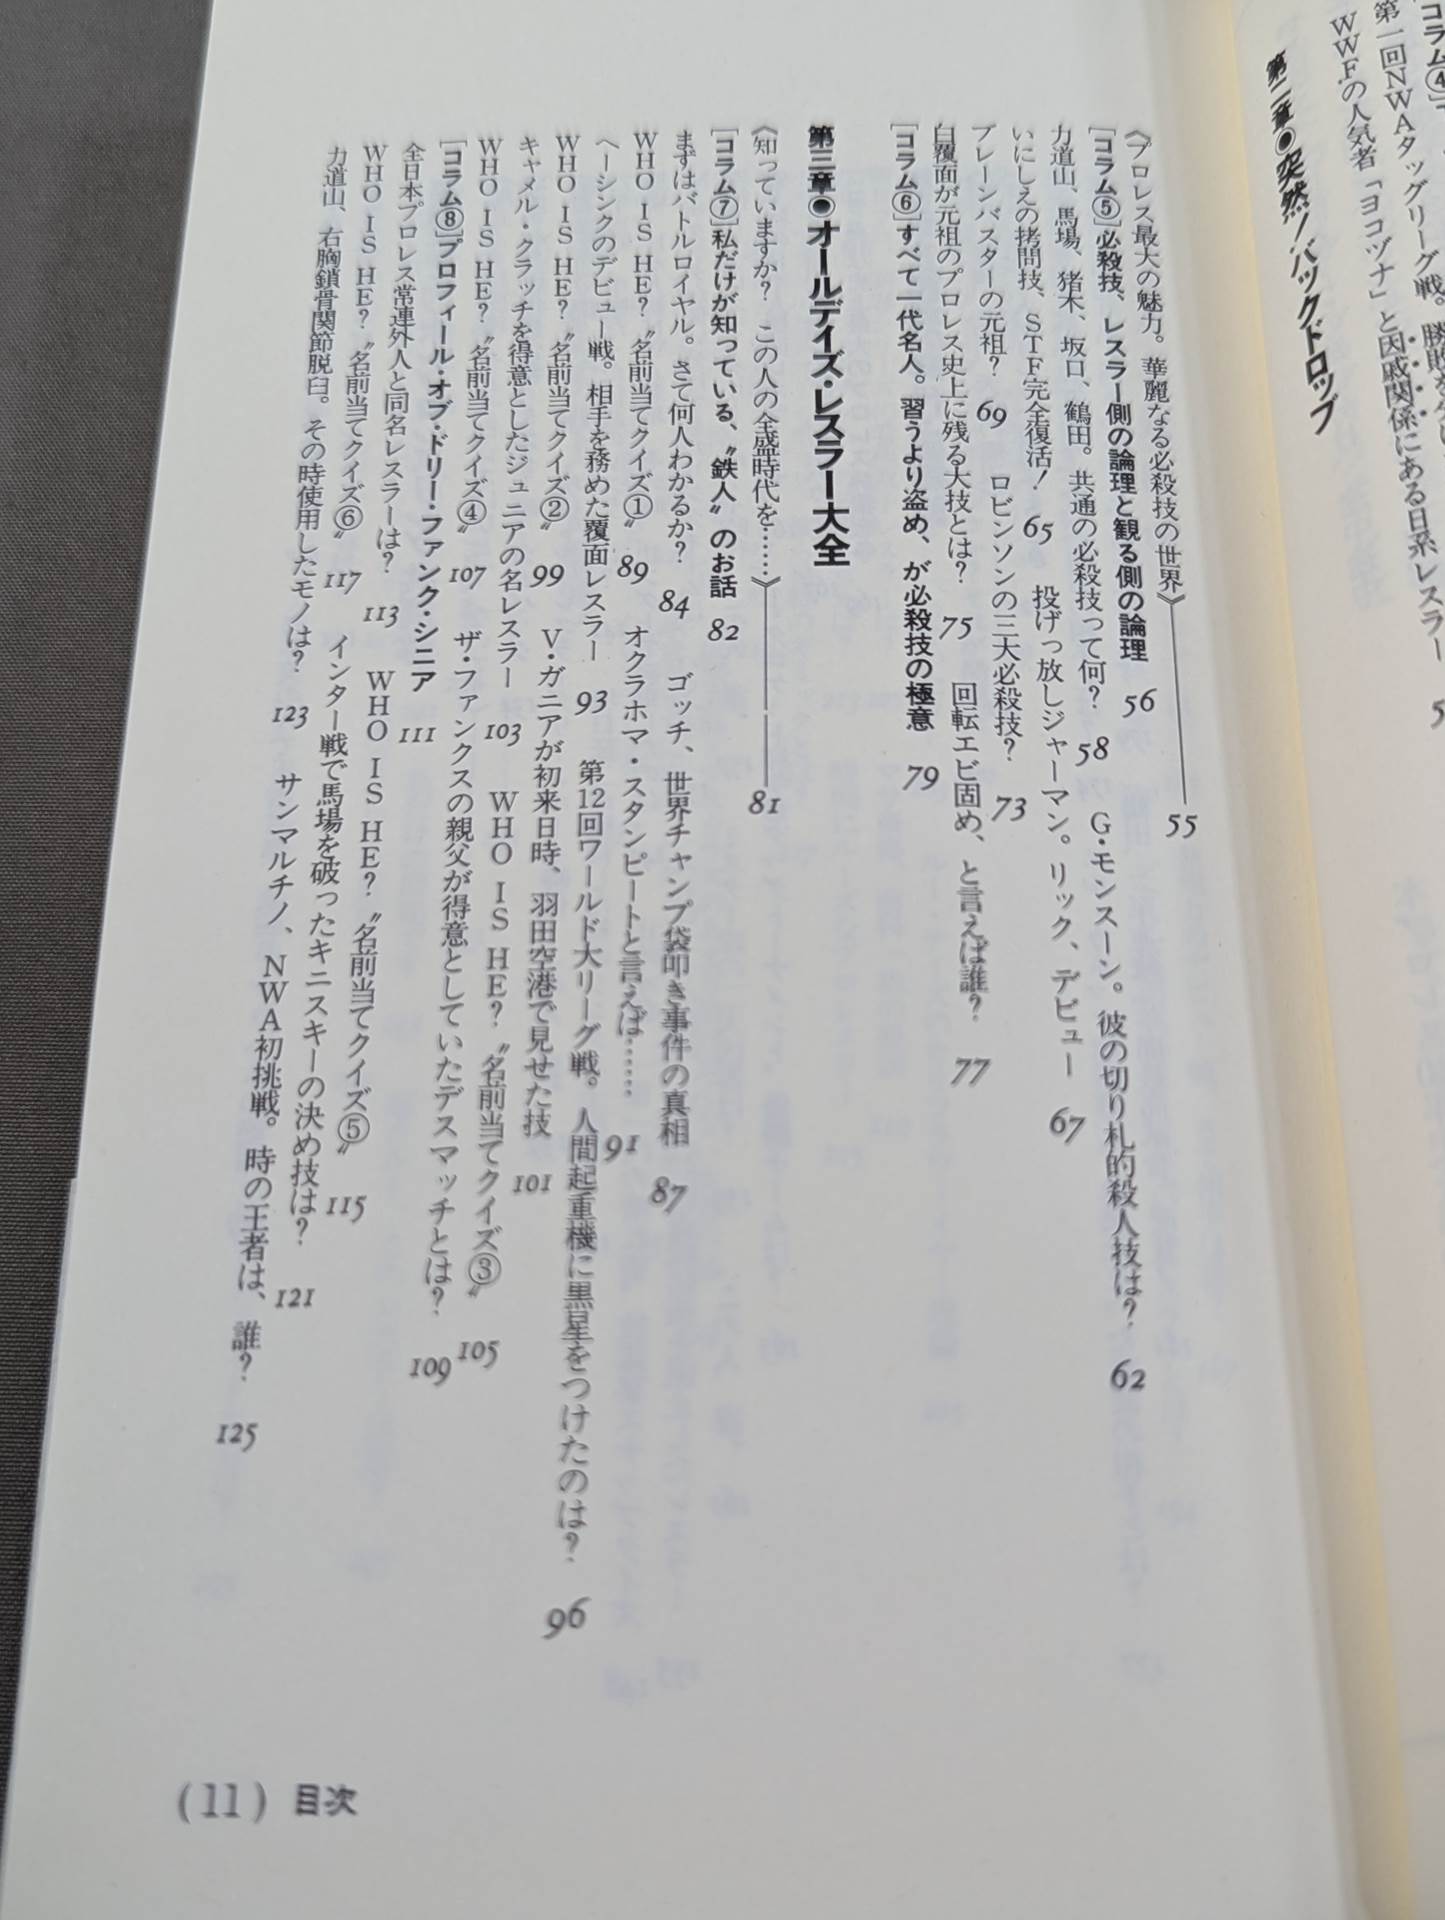 コラム④
第一回NWAタッグリーグ戦。勝敗を
WWFの人気者「ヨコヅナ」と因戚関係にある日系レスラー
第二章●突然！バックドロップ
《プロレス最大の魅力。華麗なる必殺技の世界》 55
[コラム⑤]必殺技、レスラー側の論理と観る側の論理 56
力道山、馬場、猪木、坂口、鶴田。共通の必殺技って何？ 58 G・モンスーン。彼の切り札的殺人技は？ 62
いにしえの拷問技、STF完全復活！ 65 投げっ放しジャーマン。リック、デビュー 67
ブレーンバスターの元祖？ 69 ロビンソンの三大必殺技？ 73
白覆面が元祖のプロレス史上に残る大技とは？ 75 回転エビ固め、と言えば誰？ 77
[コラム⑥]すべて一代名人。習うより盗め、が必殺技の極意 79
第三章●オールデイズ・レスラー大全
《知っていますか？ この人の全盛時代を……》 81
[コラム⑦]私だけが知っている、〝鉄人〟のお話 82
まずはバトルロイヤル。さて何人わかるか？ 84 ゴッチ、世界チャンプ袋叩き事件の真相 87
WHO IS HE？〝名前当てクイズ①〟 89 オクラホマ・スタンピートと言えば…… 91
ヘーシンクのデビュー戦。相手を務めた覆面レスラー 93 第12回ワールド大リーグ戦。人間起重機に黒星をつけたのは？ 96
WHO IS HE？〝名前当てクイズ②〟 99 V・ガニアが初来日時、羽田空港で見せた技 101
キャメル・クラッチを得意としたジュニアの名レスラー 103 WHO IS HE？〝名前当てクイズ③〟 105
WHO IS HE？〝名前当てクイズ④〟 107 ザ・ファンクスの親父が得意としていたデスマッチとは？ 109
[コラム⑧]プロフィール・オブ・ドリー・ファンク・シニア 111
全日本プロレス常連外人と同名レスラーは？ 113 WHO IS HE？〝名前当てクイズ⑤〟 115
WHO IS HE？〝名前当てクイズ⑥〟 117 インター戦で馬場を破ったキニスキーの決め技は？ 121
力道山、右胸鎖骨関節脱臼。その時使用したモノは？ 123 サンマルチノ、NWA初挑戦。時の王者は、誰？ 125
(11) 目次